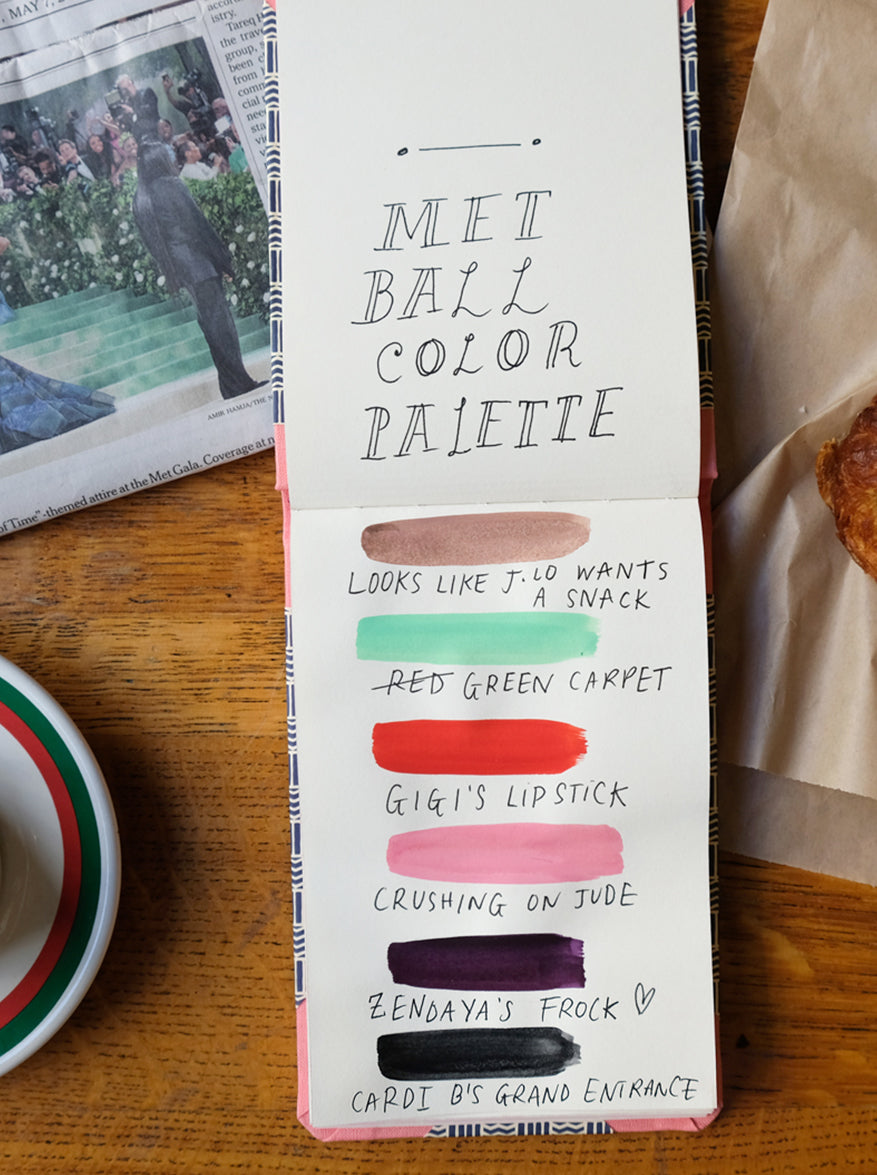 , MAY 7, 2
istry.
Tareq
the trave
group,
been c
from
com
cial
nee
sta
vi
AMIR HAMJA/THE N
of Time"-themed attire at the Met Gala. Coverage at n
MET
BALL
COLOR
PALETTE
LOOKS LIKE J.LO WANTS
A SNACK
RED GREEN CARPET
GIGI'S LIPSTICK
CRUSHING ON JUDE
ZENDAYA'S FROCK
CARDI B'S GRAND ENTRANCE